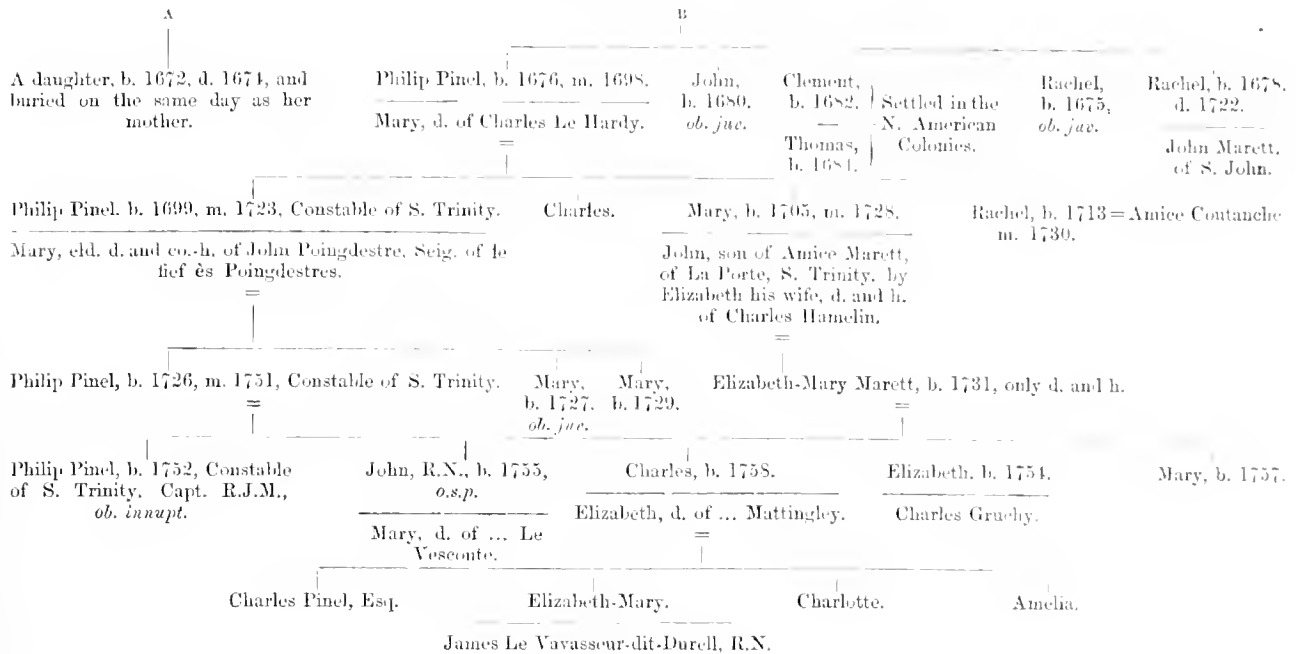 A
B
A daughter, b. 1672, d. 1674, and
buried on the same day as her
mother.
Philip Pinel, b. 1676, m. 1698.
Mary, d. of Charles Le Hardy.
=
John,
b. 1680.
ob. juv.
Clement,
b. 1682.
—
Thomas,
b. 1684.
Settled in the
N. American
Colonies.
Rachel,
b. 1675,
ob. juv.
Rachel, b. 1678.
d. 1722.
John Marett.
of S. John.
Philip Pinel. b. 1699, m. 1723, Constable of S. Trinity.
Mary, eld. d. and co.-h. of John Poingdestre, Seig. of le
fief ès Poingdestres.
=
Charles.
Mary, b. 1705, m. 1728.
John, son of Amice Marett,
of La Porte, S. Trinity. by
Elizabeth his wife, d. and h.
of Charles Hamelin.
=
Rachel, b. 1713 = Amice Coutanche
m. 1730.
Philip Pinel, b. 1726, m. 1751, Constable of S. Trinity.
=
Mary,
b. 1727.
ob. juv.
Mary,
b. 1729.
Elizabeth-Mary Marett, b. 1731, only d. and h.
=
Philip Pinel, b. 1752, Constable
of S. Trinity. Capt. R.J.M.,
ob. innupt.
John, R.N., b. 1755,
o.s.p.
Mary, d. of ... Le
Vesconte.
Charles, b. 1758.
Elizabeth, d. of ... Mattingley.
=
Elizabeth. b. 1754.
Charles Gruchy.
Mary, b. 1757.
Charles Pinel, Esq.
Elizabeth-Mary.
James Le Vavasseur-dit-Durell, R.N.
Charlotte.
Amelia.